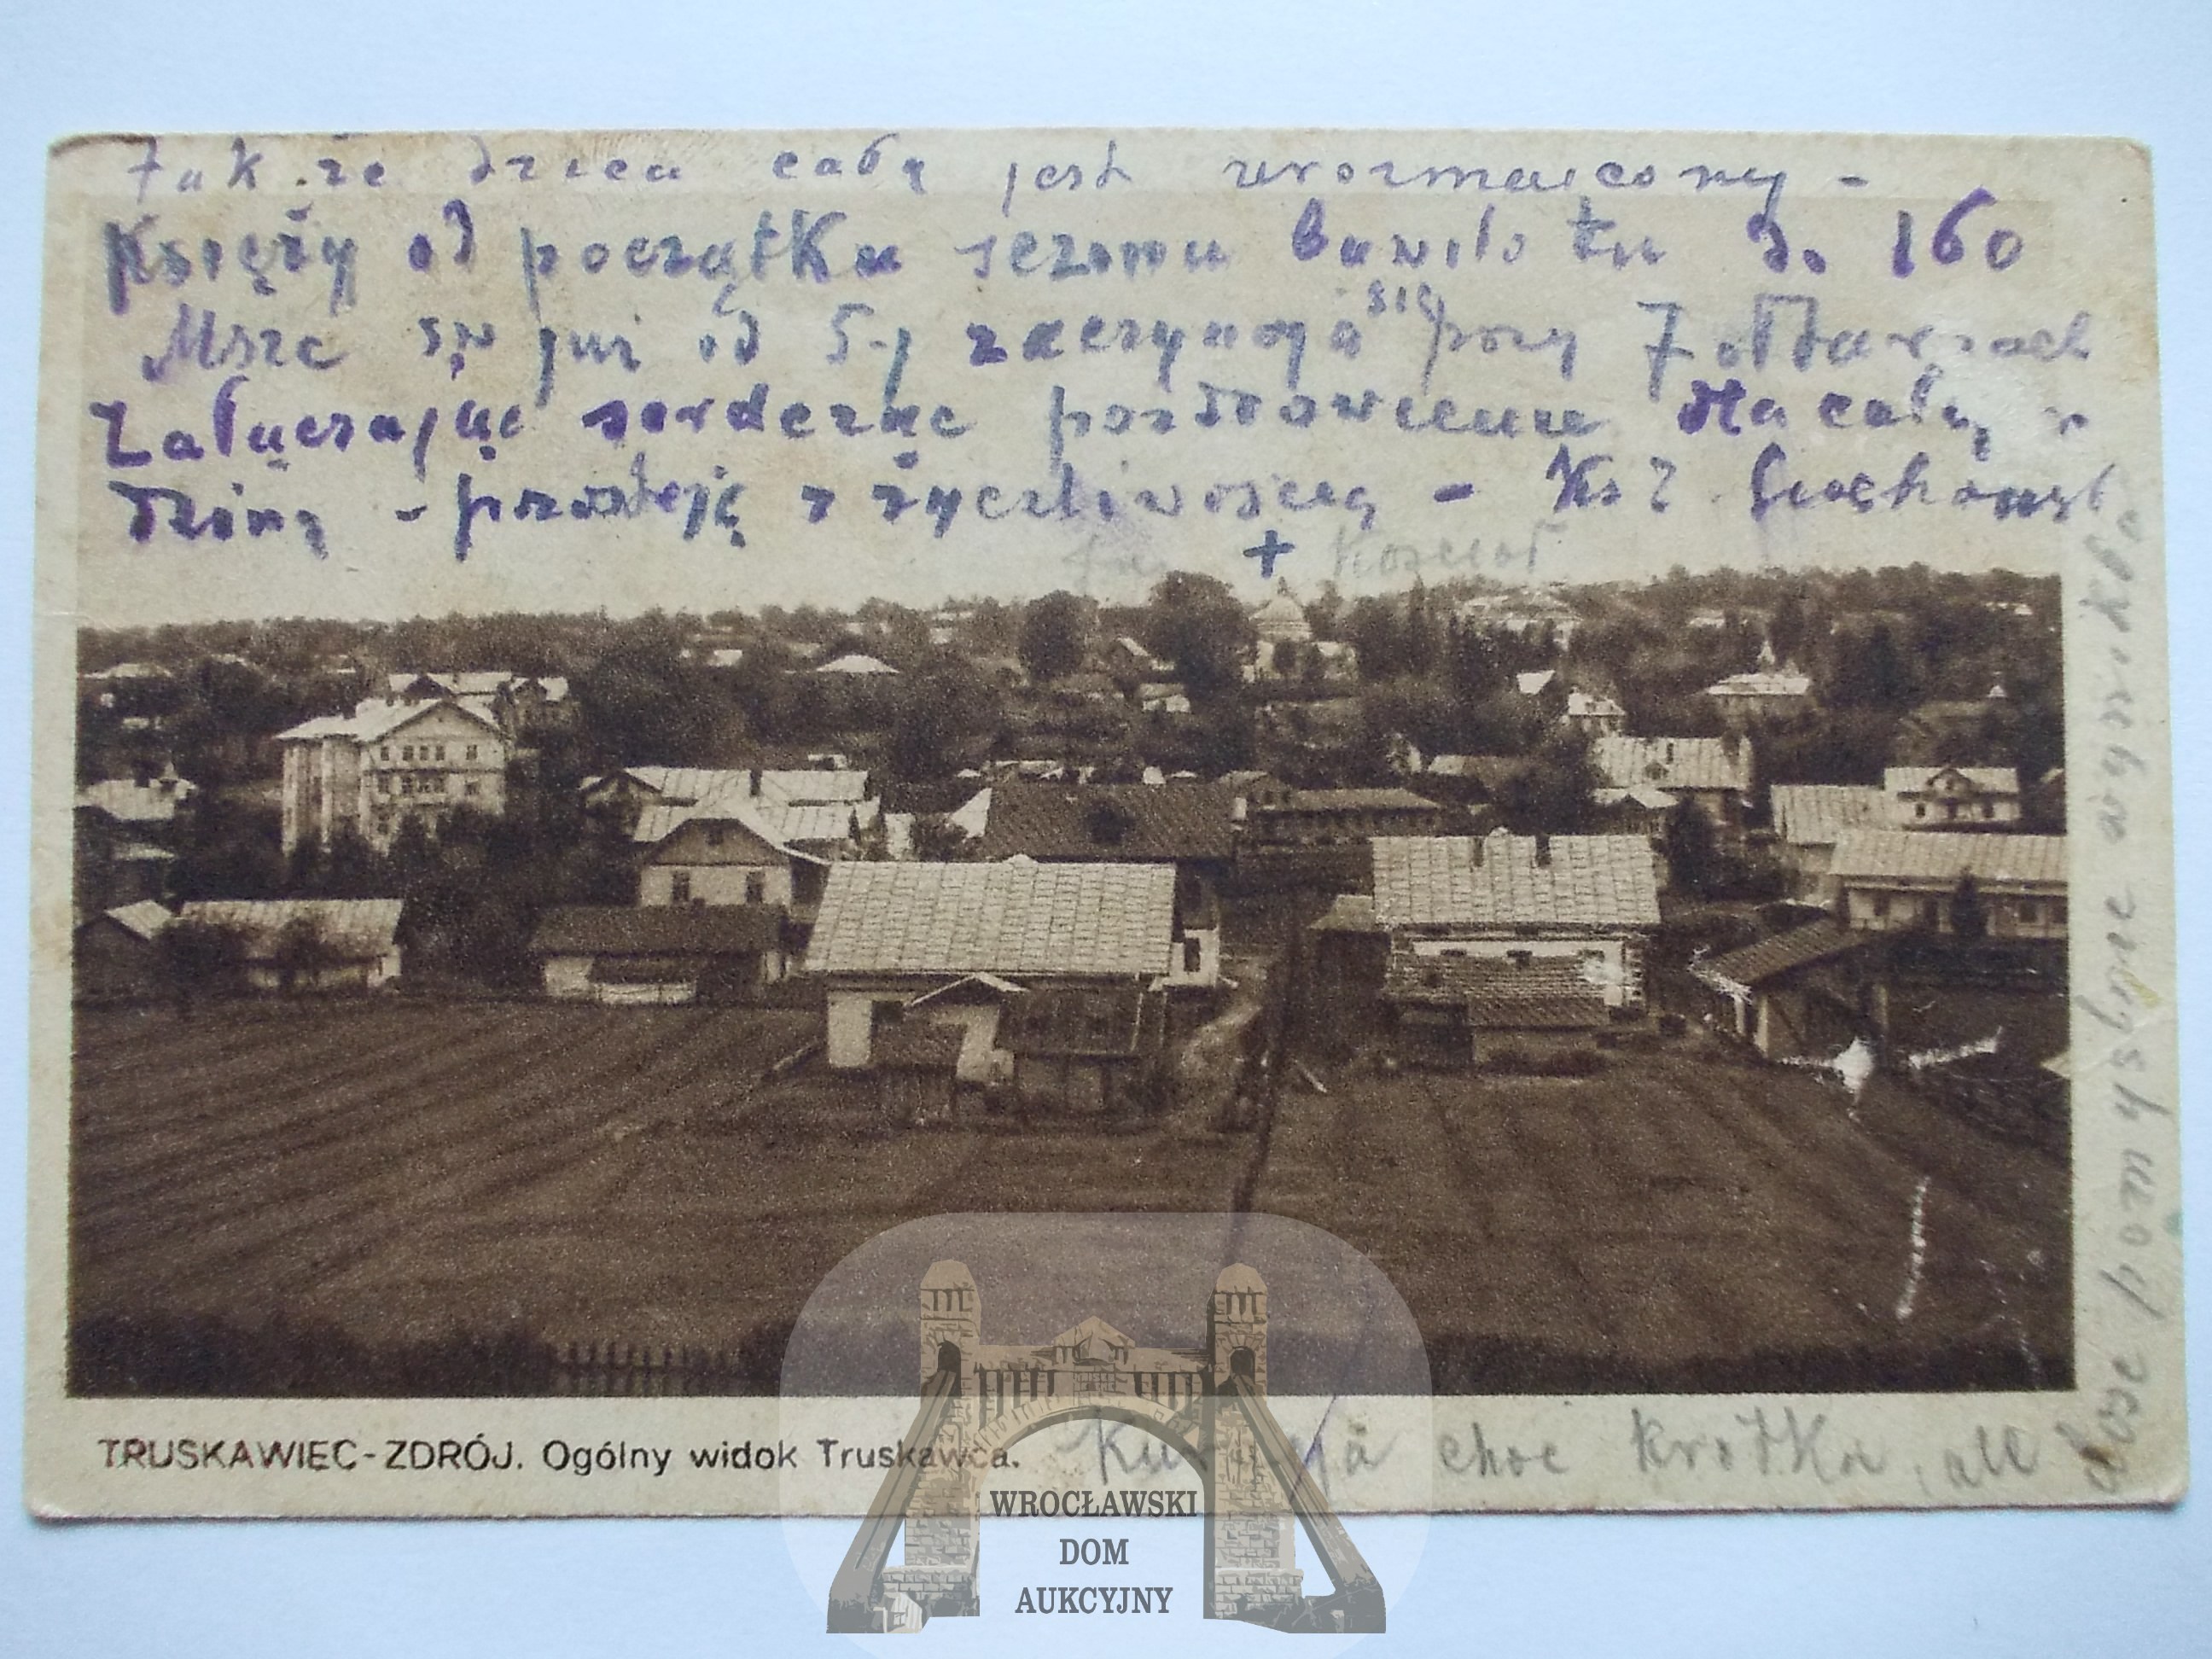 Tak że dzień cały jest urozmaicony -
Księży od początku sezonu bawiło tu do 160
Msze św już od 5-j zaczynają się przy 7 ołtarzach
Załączając serdeczne pozdrowienie dla całej ro
dziny - pozostaję z życzliwością - Ks
+ Kościół
TRUSKAWIEC-ZDRÓJ. Ogólny widok Truskawca.
Kuracja choć krótka, ale
dosc pomyslne wyniki
WROCŁAWSKI
DOM
AUKCYJNY